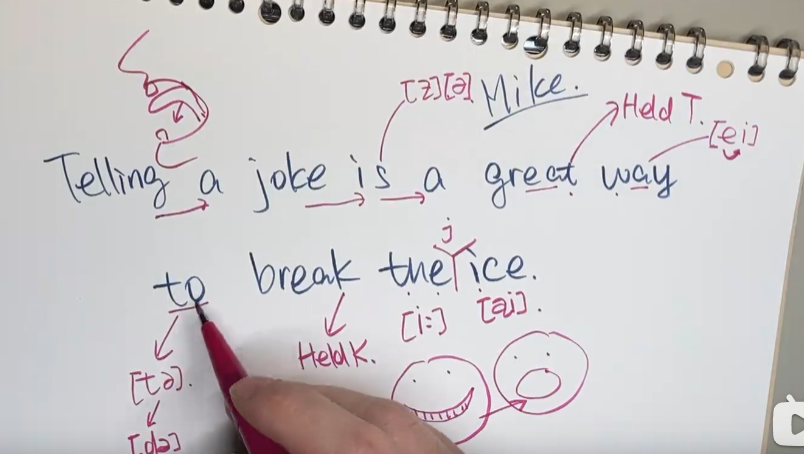 [z][ə] Mike.
Held T.
[ei]
Telling a joke is a great way
j
to break the ice.
[i:] [ai].
Held K.
[tə].
[də]